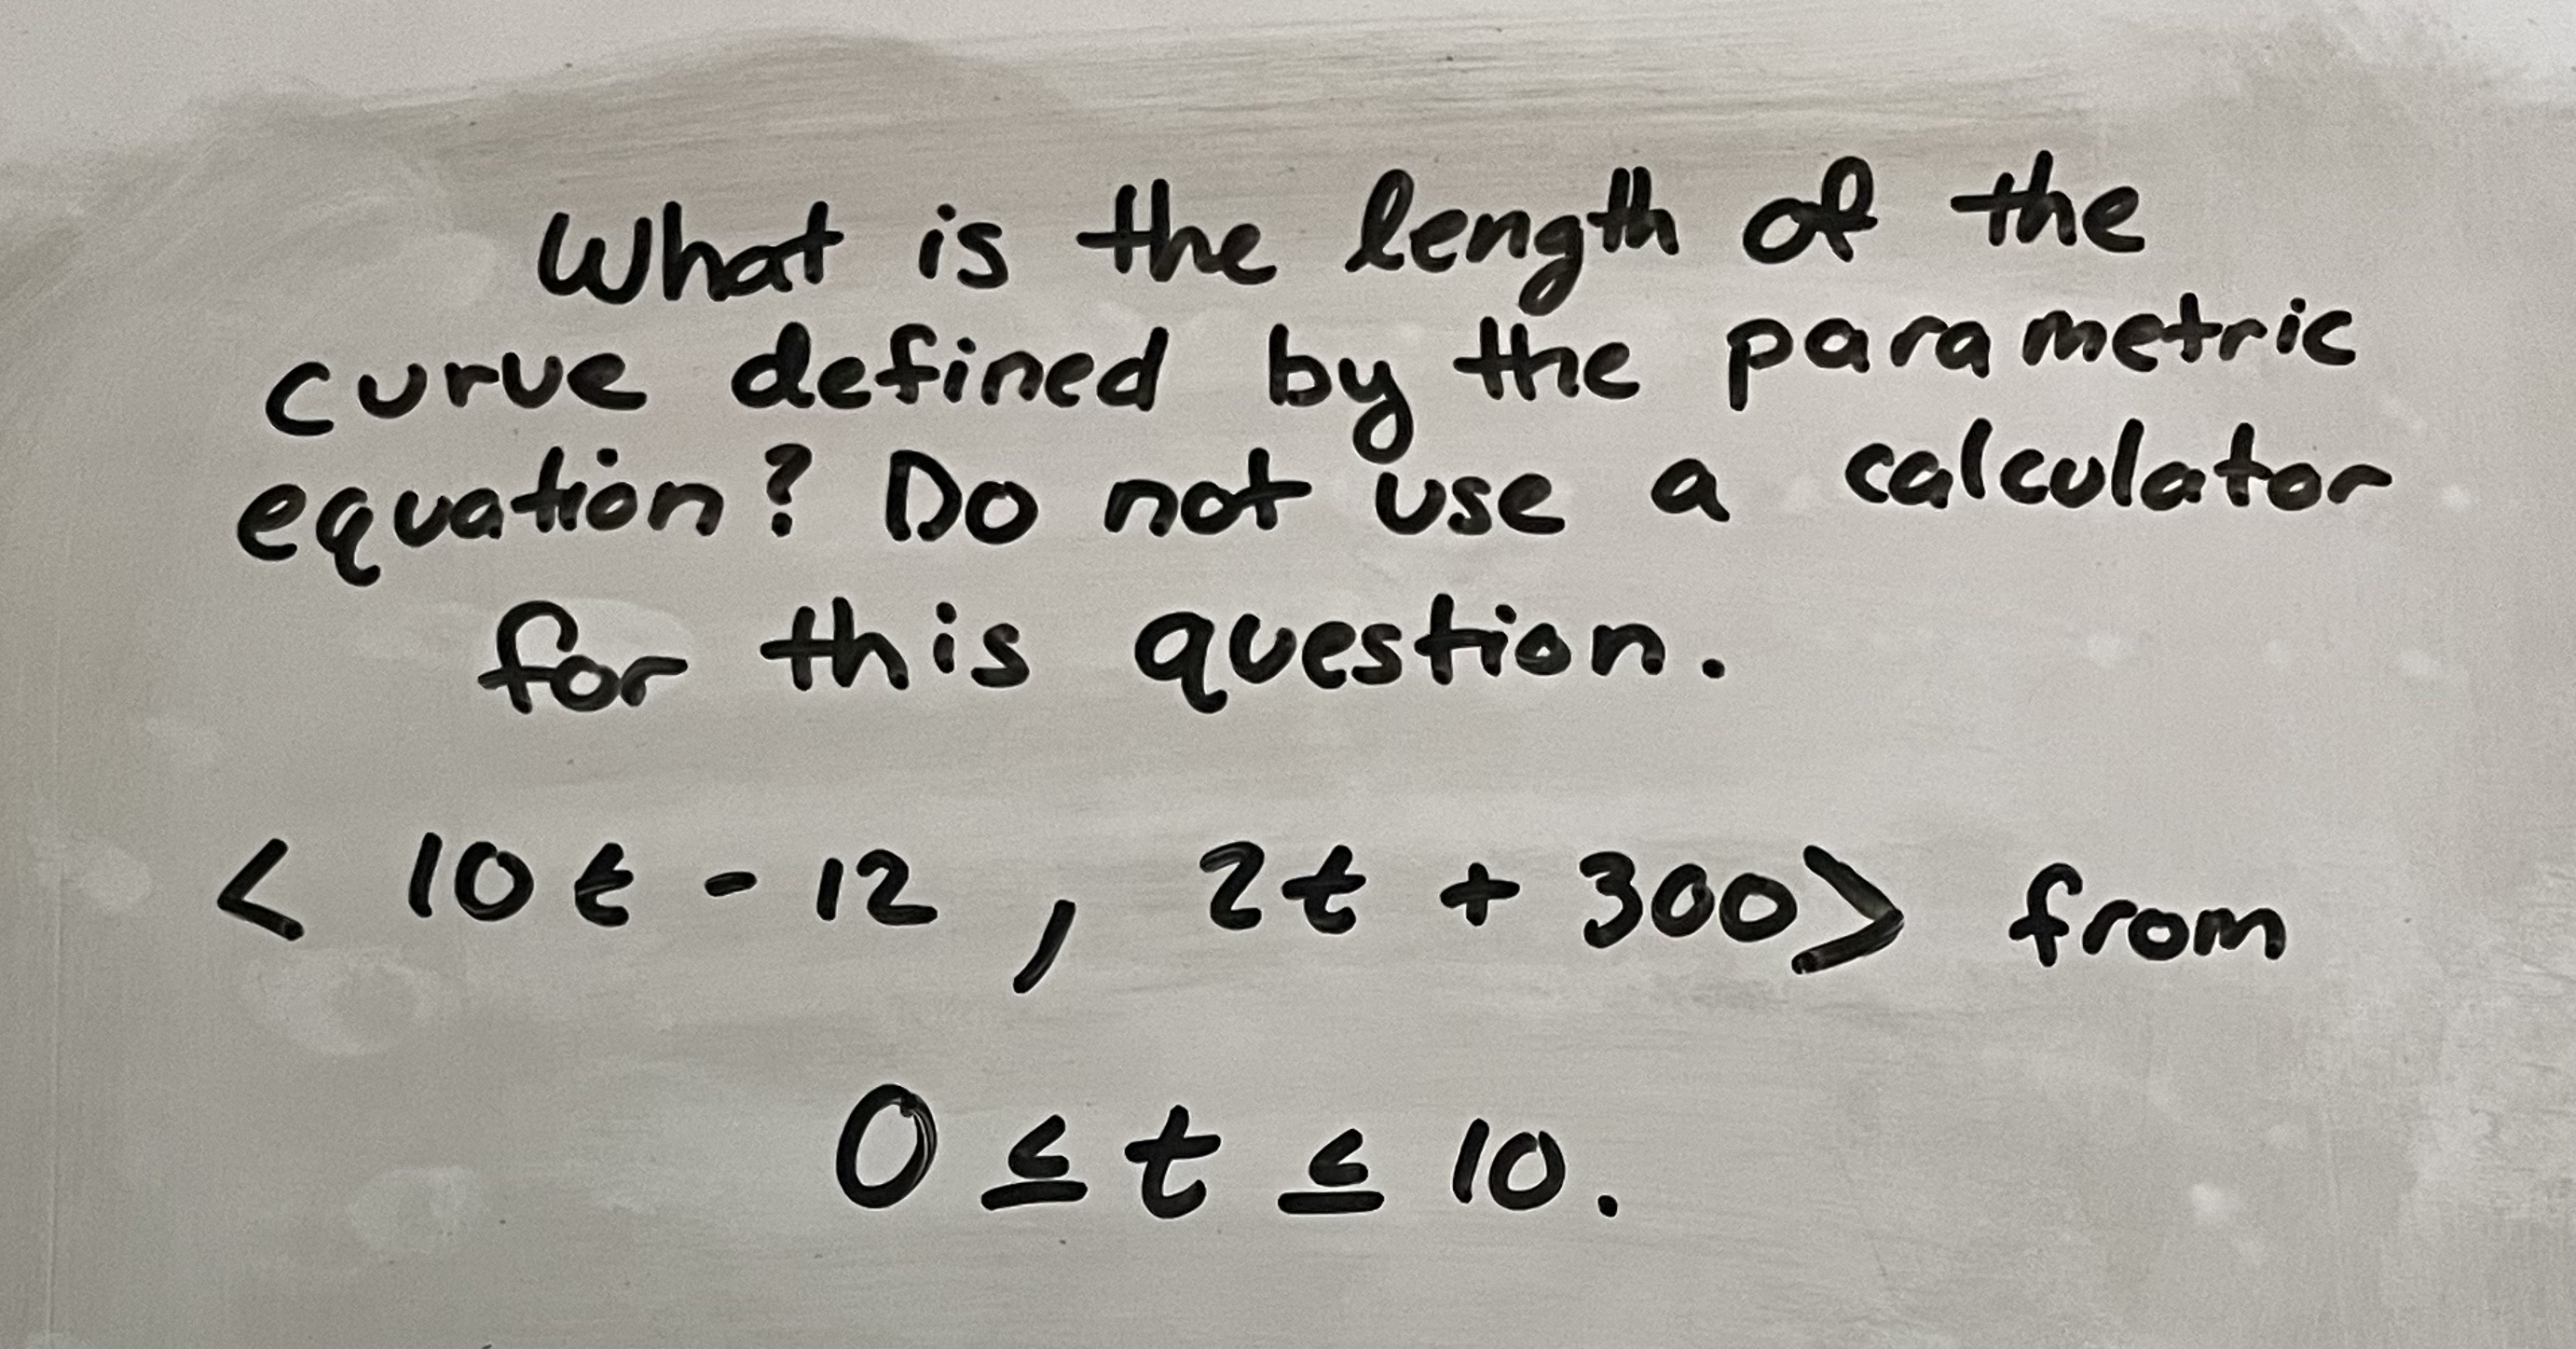 What is the length of the
curve defined by the parametric
equation? Do not use a calculator
for this question.
< 10t - 12 , 2t + 300> from
0 ≤ t ≤ 10.